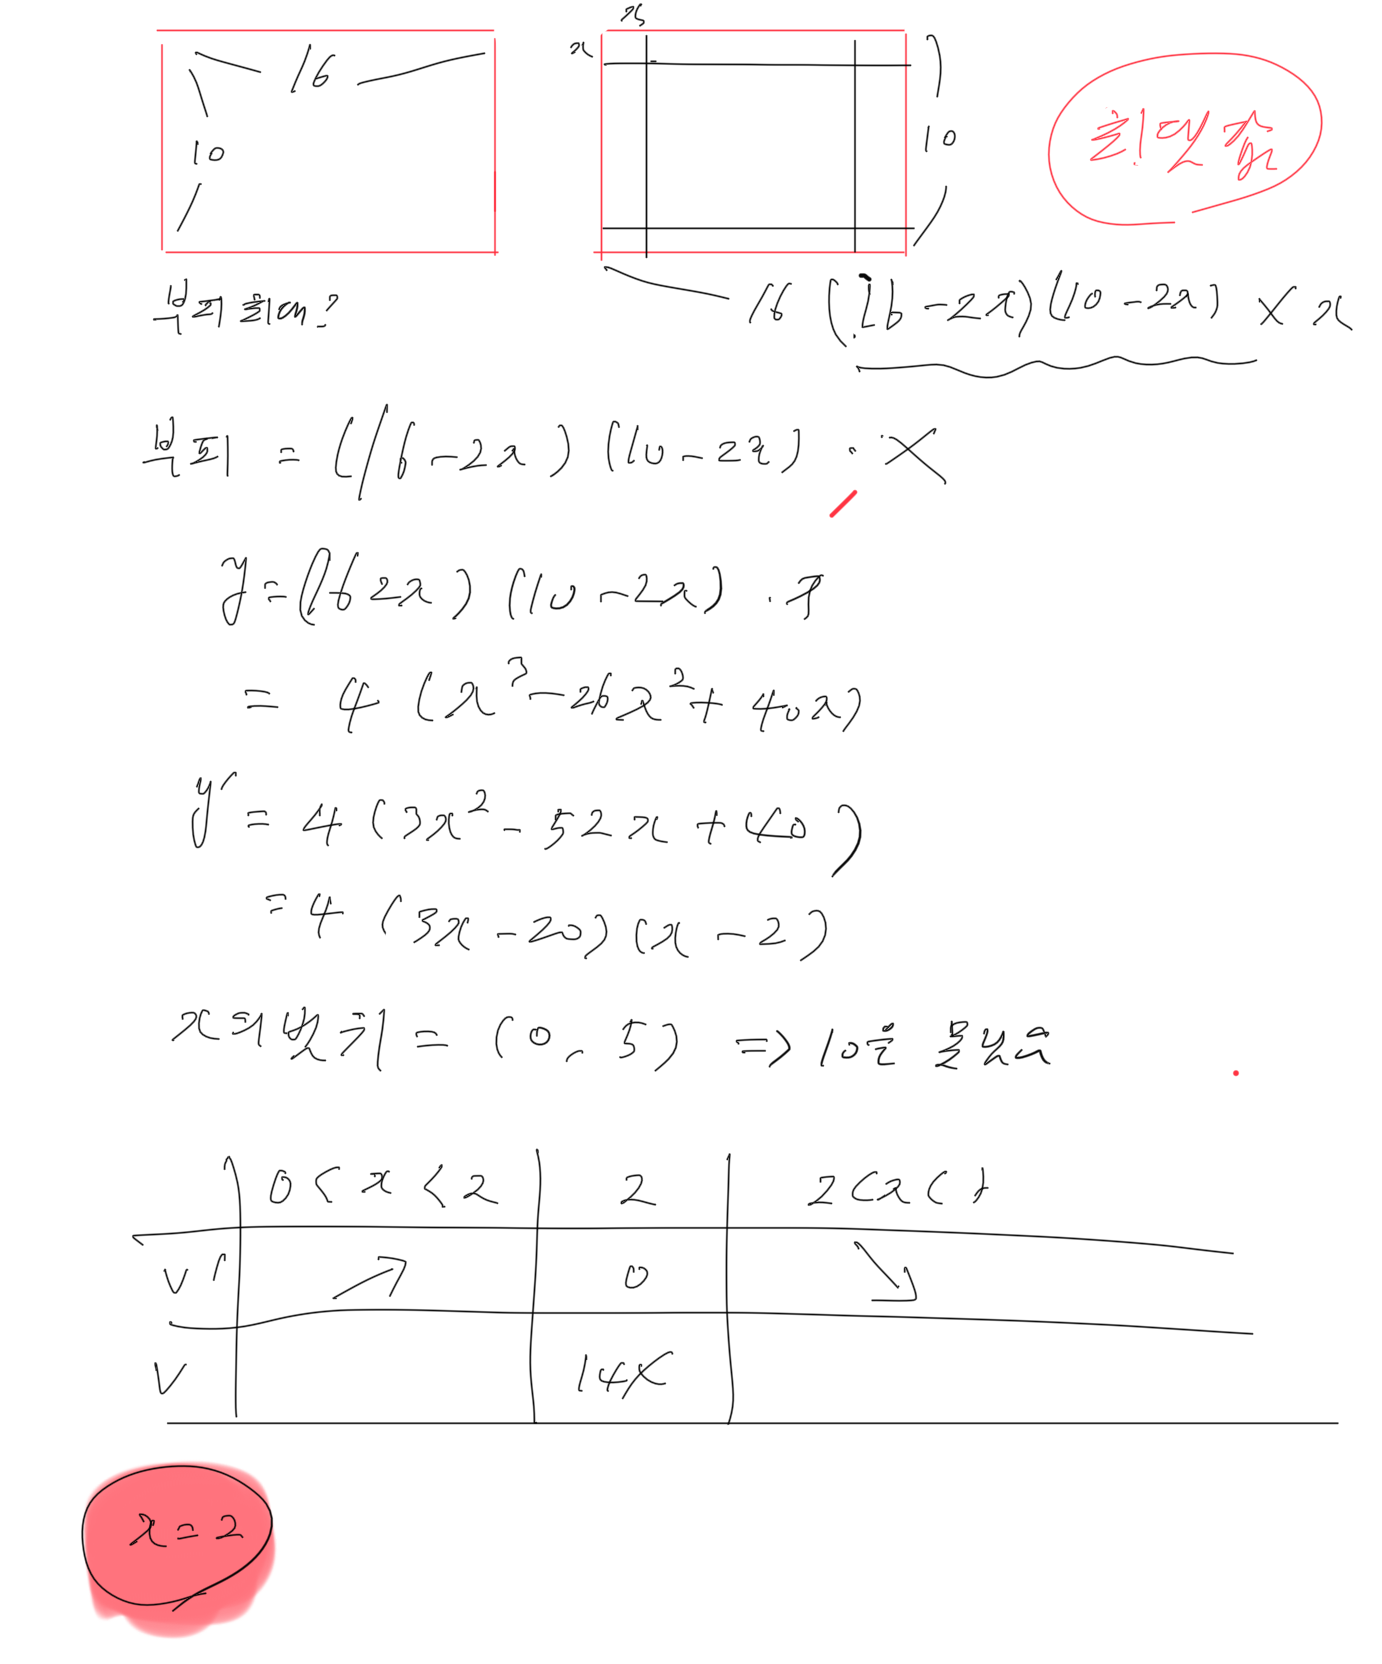 16
10
x
x
10
최댓값
부피 최대?
16 (16-2x)(10-2x) × x
부피 = (16-2x)(10-2x) · x
y=(16 2x)(10-2x) · x
= 4 (x³-26x²+40x)
y' = 4 (3x²-52x+40)
=4 (3x-20)(x-2)
x의 범위 = (0, 5) => 10은
0<x<2 2 2<x<
V' ↗ 0 ↘
V 14
x=2